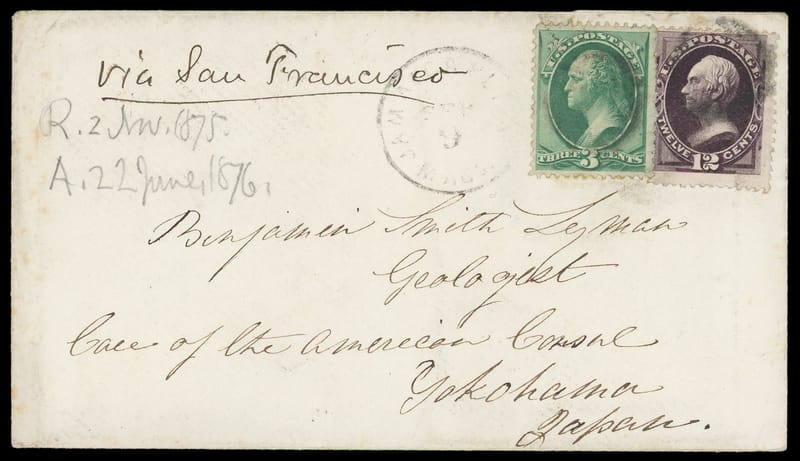 via San Francisco
R. 2 Nov. 1875.
A. 22 June, 1876.
U.S. POSTAGE
THREE 3 CENTS
U.S. POSTAGE
TWELVE 12 CENTS
9
MASS
Benjamin Smith Lyman
Geologist
Care of the American Consul
Yokohama
Japan.